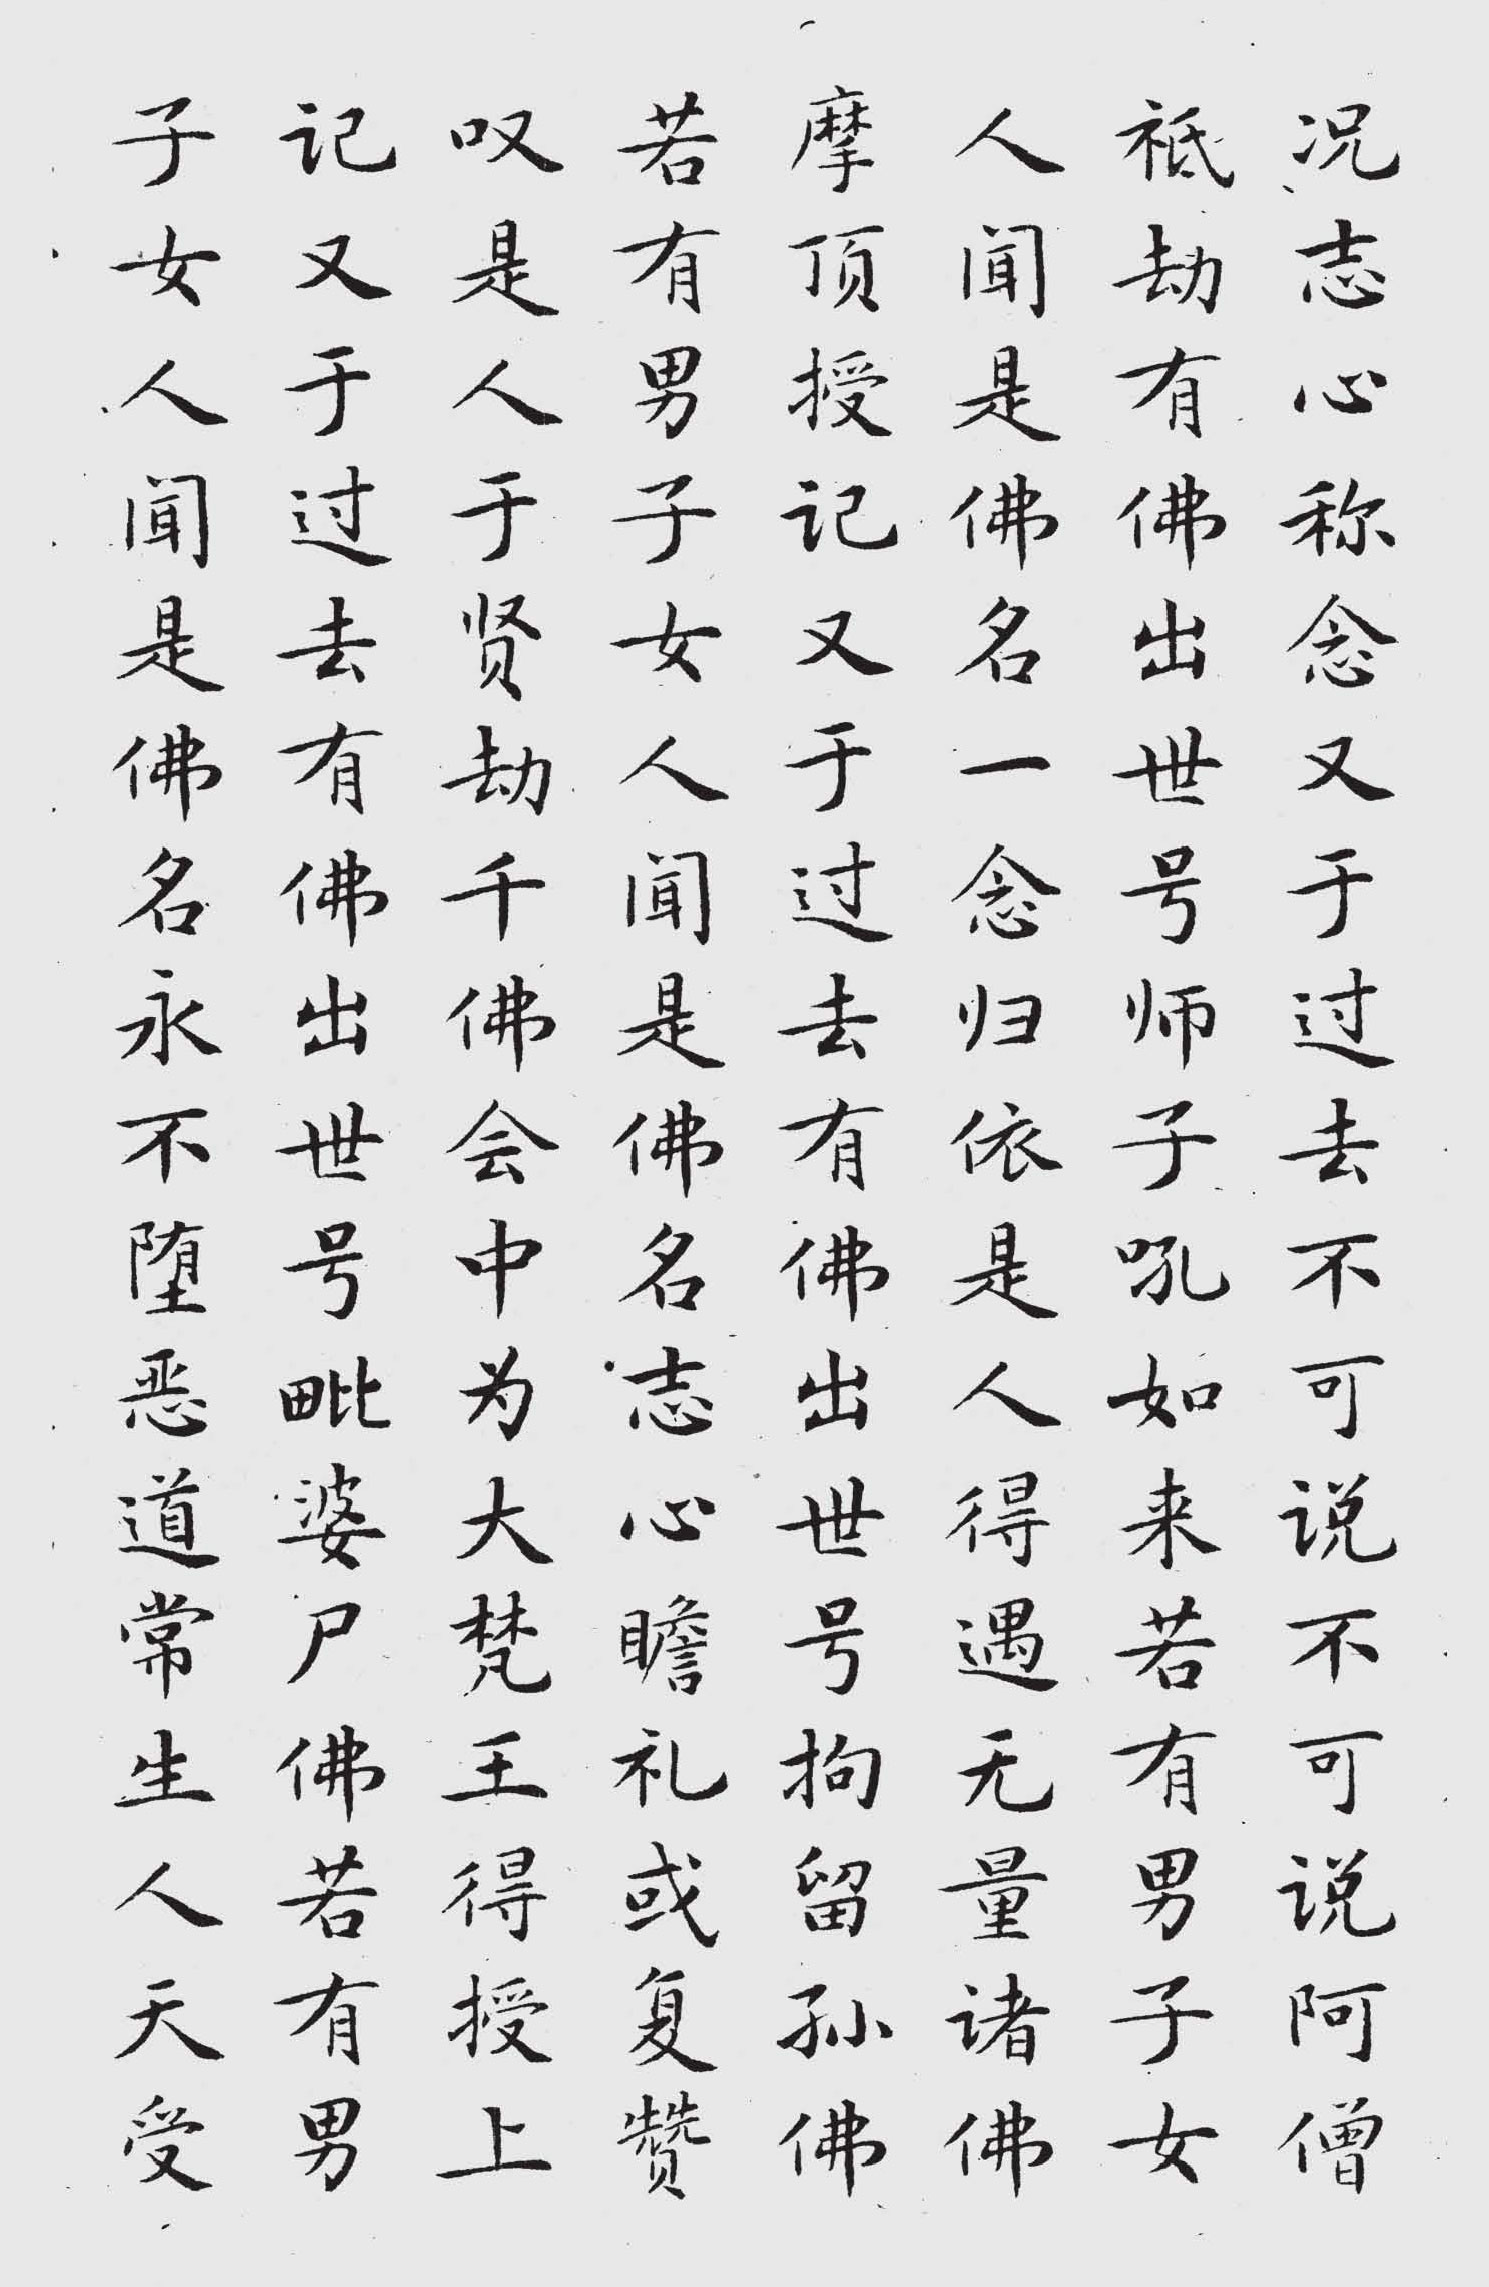 况志心称念又于过去不可说不可说阿僧
祇劫有佛出世号师子吼如来若有男子女
人闻是佛名一念归依是人得遇无量诸佛
摩顶授记又于过去有佛出世号拘留孙佛
若有男子女人闻是佛名志心瞻礼或复赞
叹是人于贤劫千佛会中为大梵王得授上
记又于过去有佛出世号毗婆尸佛若有男
子女人闻是佛名永不堕恶道常生人天受